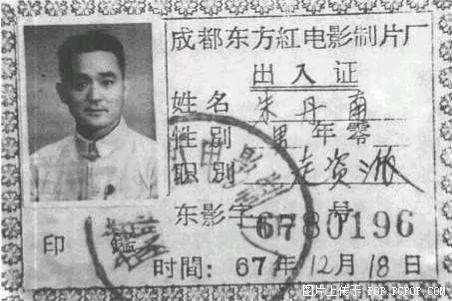 成都东方红电影制片厂
出入证
姓名 朱丹南
性别 男 年零
职别 走资派
东影字 6780196 号
印鑑
时间: 67年12月18日
图片上传于 POP.PCPOP.COM